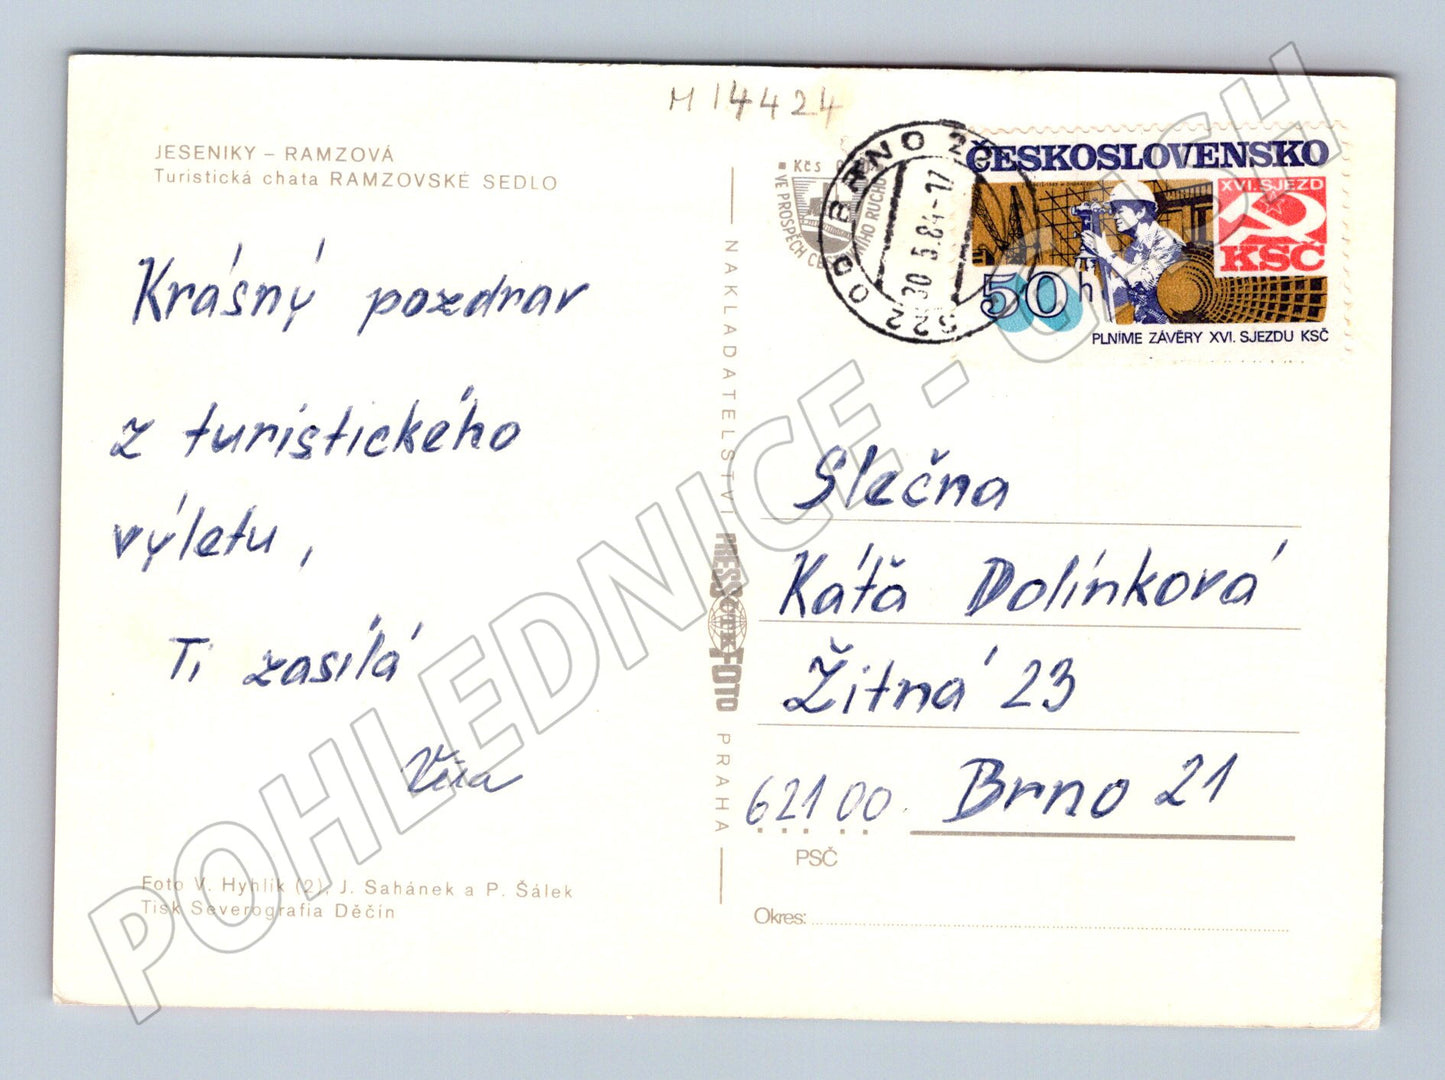 M 14424
JESENIKY – RAMZOVÁ
Turistická chata RAMZOVSKÉ SEDLO
Krásný pozdrav
z turistického
výletu,
Ti zasílá
Věra
Foto V. Hyhlík (2), J. Sahánek a P. Šálek
Tisk Severografia Děčín
NAKLADATELSTVÍ PRESSFOTO PRAHA
ČTK
Kčs
VE PROSPĚCH
BRNO 2
30.5.84-17
522 00
ČESKOSLOVENSKO
XVI. SJEZD
KSČ
50 h
PLNÍME ZÁVĚRY XVI. SJEZDU KSČ
Slečna
Káťa Dolínková
Žitná 23
621 00 Brno 21
PSČ
Okres:
POHLEDNICE - CASH